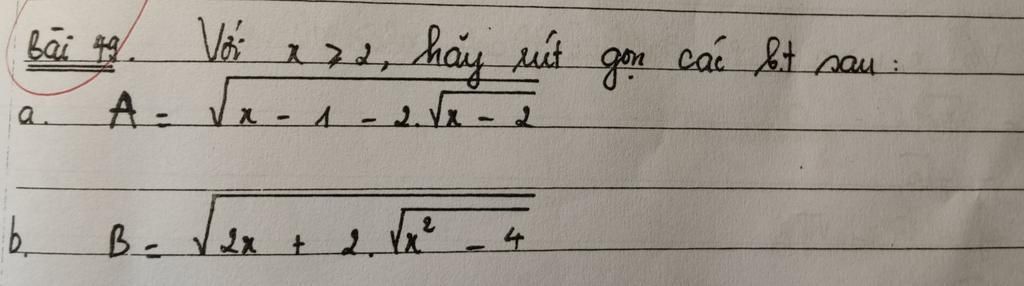 Bài 49. Với x ⩾ 2, hãy rút gọn các bt sau :
a. A = √(x - 1 - 2.√(x - 2))
b. B = √(2x + 2.√(x² - 4))